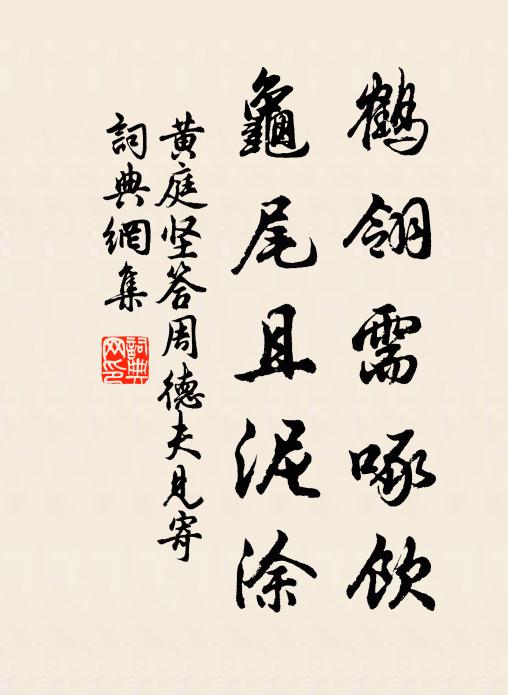 鹤翎需啄饮
龜尾且泥涂
黄庭坚答周德夫見寄
詞典網集
詞典网印